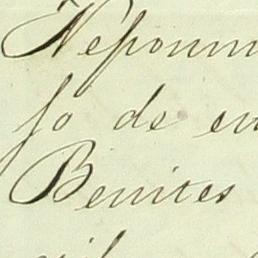 Nepomu
fo de en
Benites